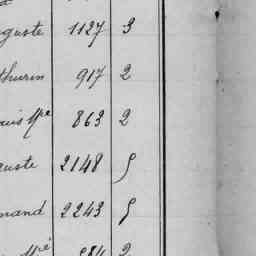 guste 1127 3
thurin 917 2
ouis Mce 863 2
guste 2148 5
mand 2243 5
584 2